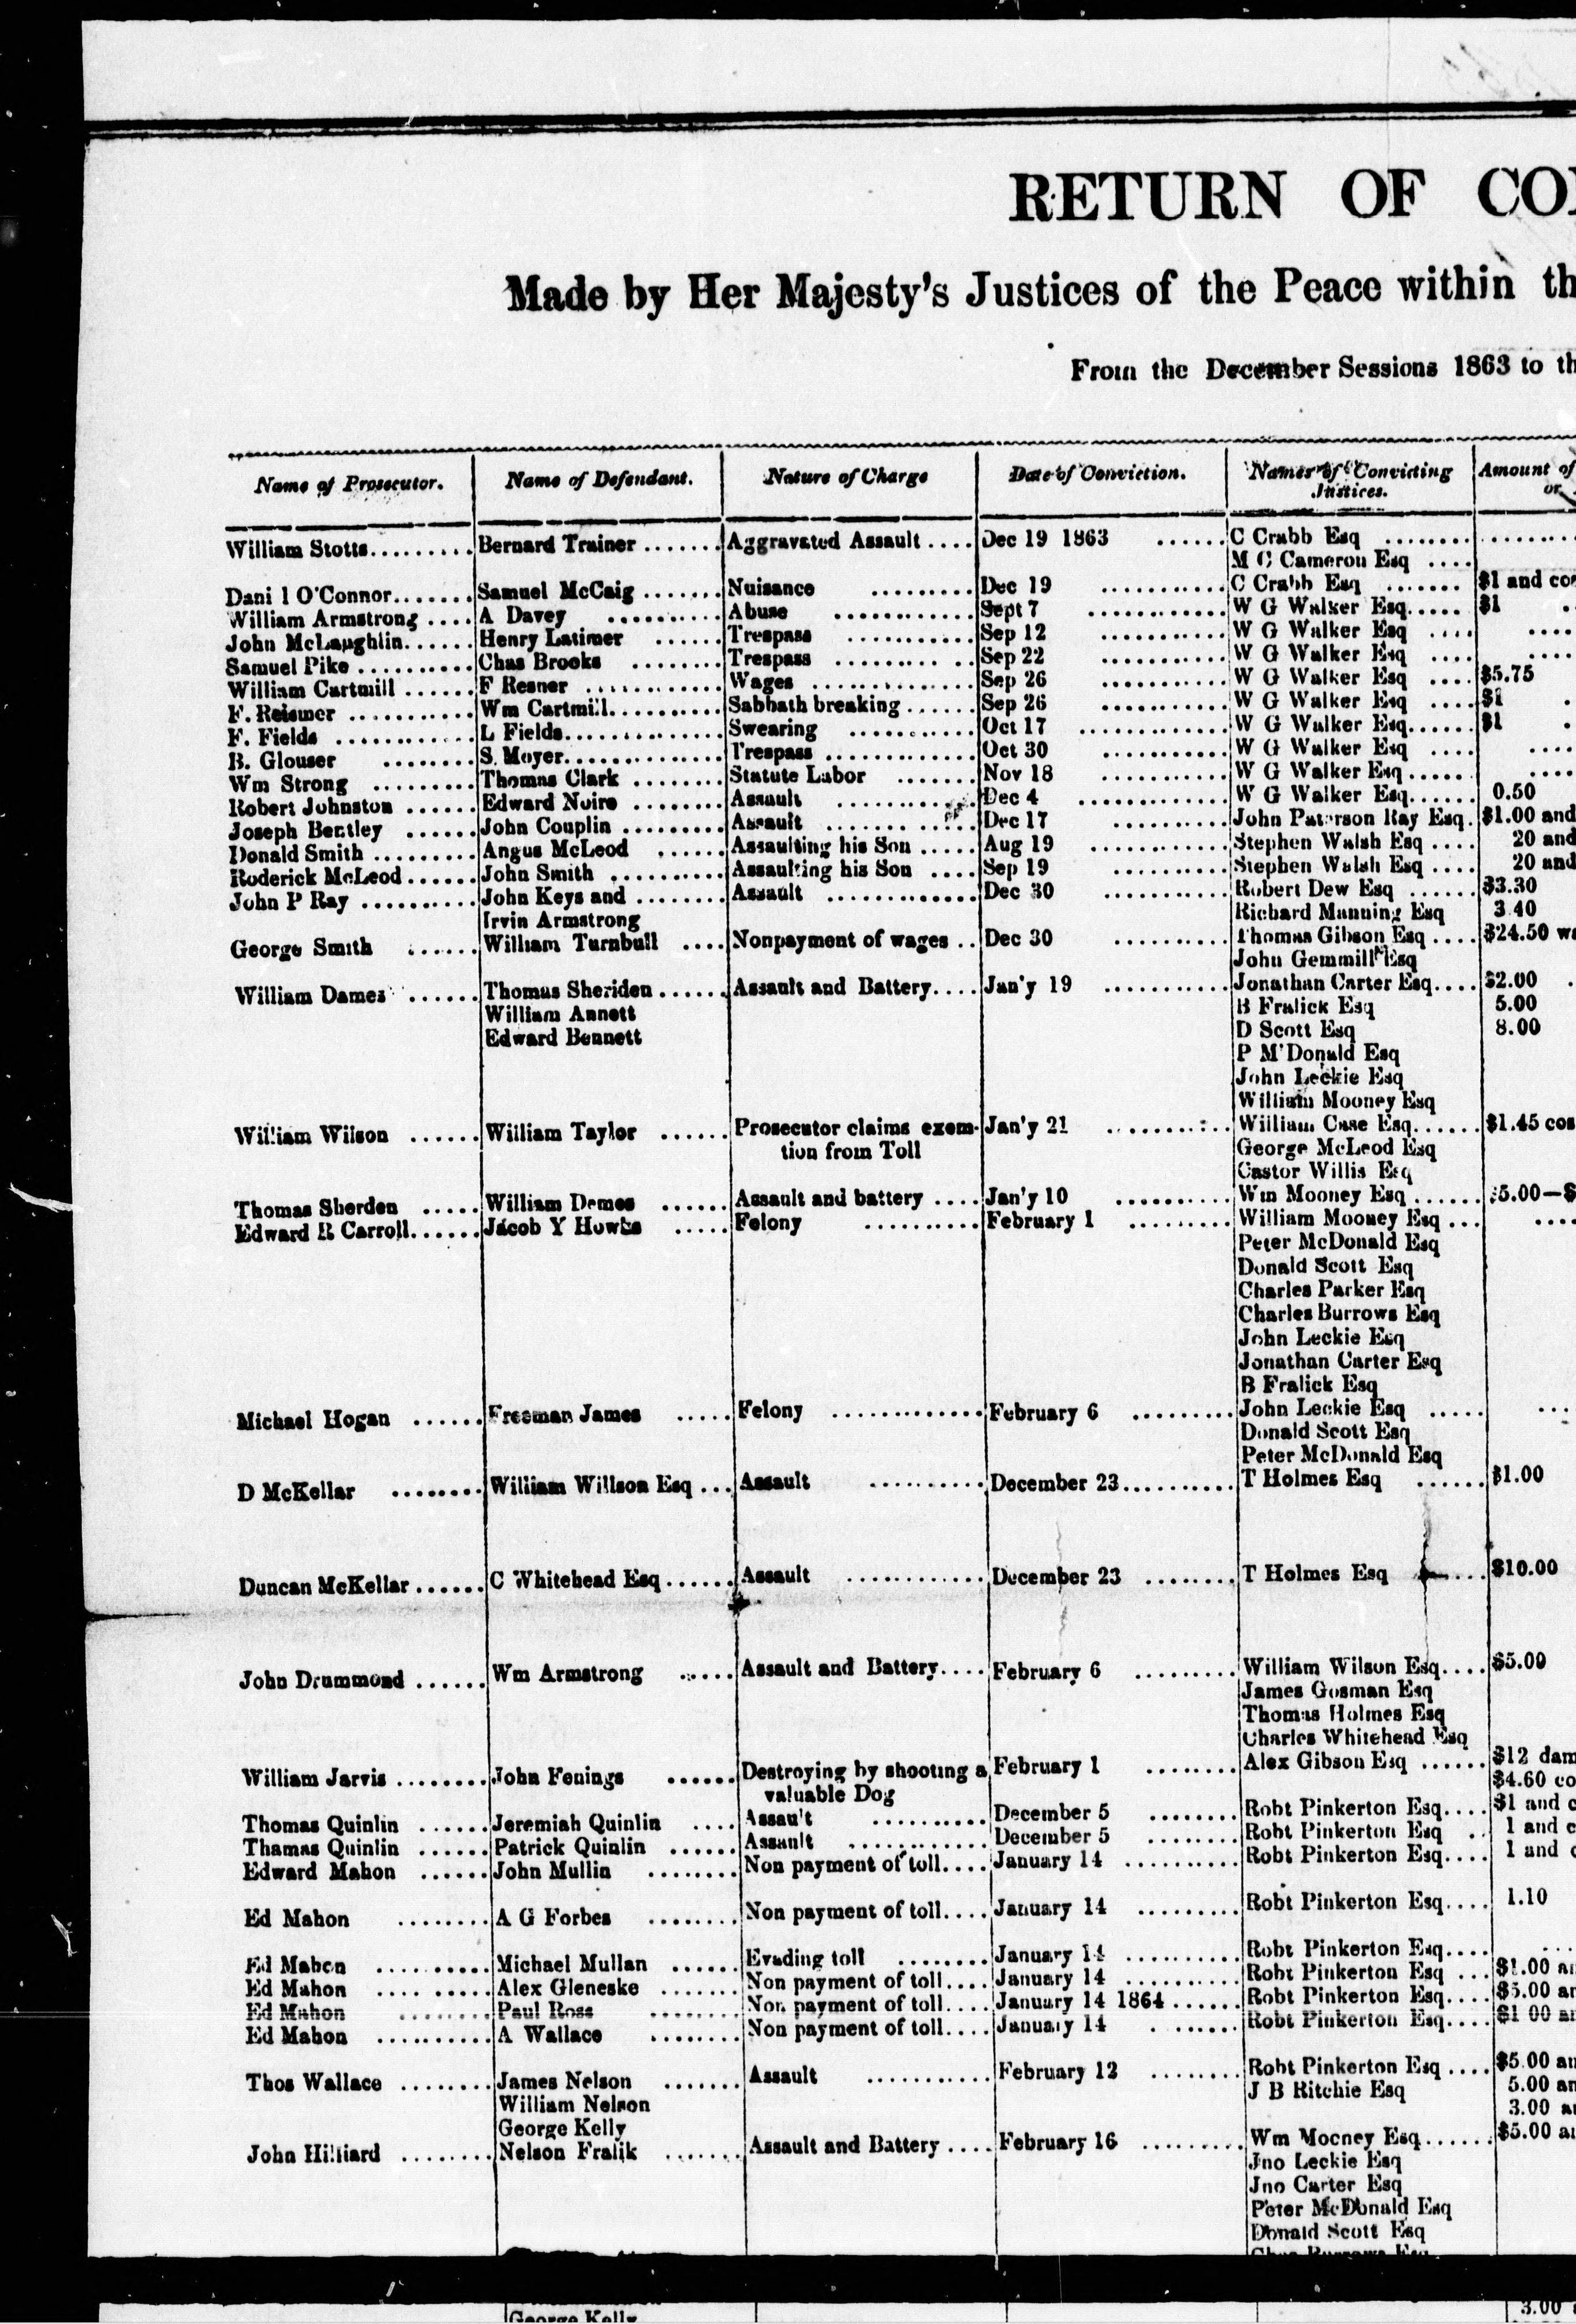 RETURN OF CO
Made by Her Majesty's Justices of the Peace within th
From the December Sessions 1863 to th
Name of Prosecutor. Name of Defendant. Nature of Charge Date of Conviction. Names of Convicting Amount of
Justices. or
William Stotts......... Bernard Trainer ....... Aggravated Assault .... Dec 19 1863 ...... C Crabb Esq ........ .........
M C Cameron Esq ....
Dani l O'Connor....... Samuel McCaig ....... Nuisance .......... Dec 19 ........... C Crabb Esq ....... $1 and cos
William Armstrong .... A Davey .......... Abuse ............ Sept 7 ............ W G Walker Esq..... $1 ..
John McLaughlin...... Henry Latimer ...... Trespass ........... Sep 12 ........... W G Walker Esq .... ....
Samuel Pike .......... Chas Brooks ........ Trespass ............ Sep 22 ........... W G Walker Esq .... ....
William Cartmill ...... F Resner ............ Wages .............. Sep 26 ........... W G Walker Esq .... $5.75
F. Reismer ........... Wm Cartmill.......... Sabbath breaking...... Sep 26 ........... W G Walker Esq .... $1 .
F. Fields ............ L Fields.............. Swearing ........... Oct 17 ............. W G Walker Esq...... $1 .
B. Glouser ........ S. Moyer.............. Trespass ............. Oct 30 ........... W G Walker Esq .... ....
Wm Strong ......... Thomas Clark ........ Statute Labor ....... Nov 18 ........... W G Walker Esq...... ....
Robert Johnston ...... Edward Noire ........ Assault ............ Dec 4 ............. W G Walker Esq...... 0.50
Joseph Bentley ...... John Couplin ......... Assault ............. Dec 17 .......... John Paterson Ray Esq. $1.00 and
Donald Smith ......... Angus McLeod ...... Assaulting his Son ..... Aug 19 ............ Stephen Walsh Esq .... 20 and
Roderick McLeod...... John Smith .......... Assaulting his Son .... Sep 19 .......... Stephen Walsh Esq .... 20 and
John P Ray .......... John Keys and ........ Assault ............. Dec 30 .......... Robert Dew Esq ...... $3.30
Irvin Armstrong Richard Manning Esq 3.40
George Smith ...... William Turnbull .... Nonpayment of wages .. Dec 30 .......... Thomas Gibson Esq .... $24.50 wa
John Gemmill Esq
William Dames ...... Thomas Sheriden ...... Assault and Battery.... Jan'y 19 ........... Jonathan Carter Esq.... $2.00 .
William Annett B Fralick Esq 5.00
Edward Bennett D Scott Esq 8.00
P M'Donald Esq
John Leckie Esq
William Mooney Esq
William Wilson ...... William Taylor ...... Prosecutor claims exem- Jan'y 21 .......... William Case Esq...... $1.45 cos
tion from Toll George McLeod Esq
Castor Willis Esq
Thomas Sherden ..... William Demes ...... Assault and battery .... Jan'y 10 .......... Wm Mooney Esq ...... 5.00—$
Edward R Carroll...... Jacob Y Howks ..... Felony .......... February 1 ......... William Mooney Esq ... ....
Peter McDonald Esq
Donald Scott Esq
Charles Parker Esq
Charles Burrows Esq
John Leckie Esq
Jonathan Carter Esq
B Fralick Esq
Michael Hogan ...... Freeman James ..... Felony ............. February 6 ......... John Leckie Esq ..... ...
Donald Scott Esq
Peter McDonald Esq
D McKellar ........ William Willson Esq ... Assault .......... December 23.......... T Holmes Esq ...... $1.00
Duncan McKellar ...... C Whitehead Esq ...... Assault ............ December 23 ........ T Holmes Esq .... $10.00
John Drummond ...... Wm Armstrong ..... Assault and Battery.... February 6 ......... William Wilson Esq.... $5.00
James Gosman Esq
Thomas Holmes Esq
Charles Whitehead Esq
William Jarvis ........ John Fenings ...... Destroying by shooting a February 1 ........ Alex Gibson Esq ...... $12 dam
valuable Dog $4.60 co
Thomas Quinlin ...... Jeremiah Quinlin .... Assault .......... December 5 ........ Robt Pinkerton Esq.... $1 and c
Thamas Quinlin ...... Patrick Quinlin ...... Assault ............ December 5 ........ Robt Pinkerton Esq .. 1 and c
Edward Mahon ...... John Mullin ........ Non payment of toll.... January 14 .......... Robt Pinkerton Esq.... 1 and c
Ed Mahon ........ A G Forbes ........ Non payment of toll.... January 14 ......... Robt Pinkerton Esq.... 1.10
Ed Mahon .......... Michael Mullan ...... Evading toll ........ January 14 .......... Robt Pinkerton Esq.... ...
Ed Mahon .......... Alex Gleneske ....... Non payment of toll.... January 14 .......... Robt Pinkerton Esq ... $1.00 an
Ed Mahon ........ Paul Ross ........ Non payment of toll.... January 14 1864 ...... Robt Pinkerton Esq.... $5.00 an
Ed Mahon .......... A Wallace ........ Non payment of toll.... January 14 ........ Robt Pinkerton Esq.... $1 00 an
Thos Wallace ........ James Nelson ....... Assault ........... February 12 ........ Robt Pinkerton Esq .... $5.00 an
William Nelson J B Ritchie Esq 5.00 an
George Kelly 3.00 an
John Hilliard ........ Nelson Fralik ....... Assault and Battery .... February 16 ......... Wm Mocney Esq...... $5.00 an
Jno Leckie Esq
Jno Carter Esq
Peter McDonald Esq
Donald Scott Esq
Chas Burrows Esq
George Kelly 3.00